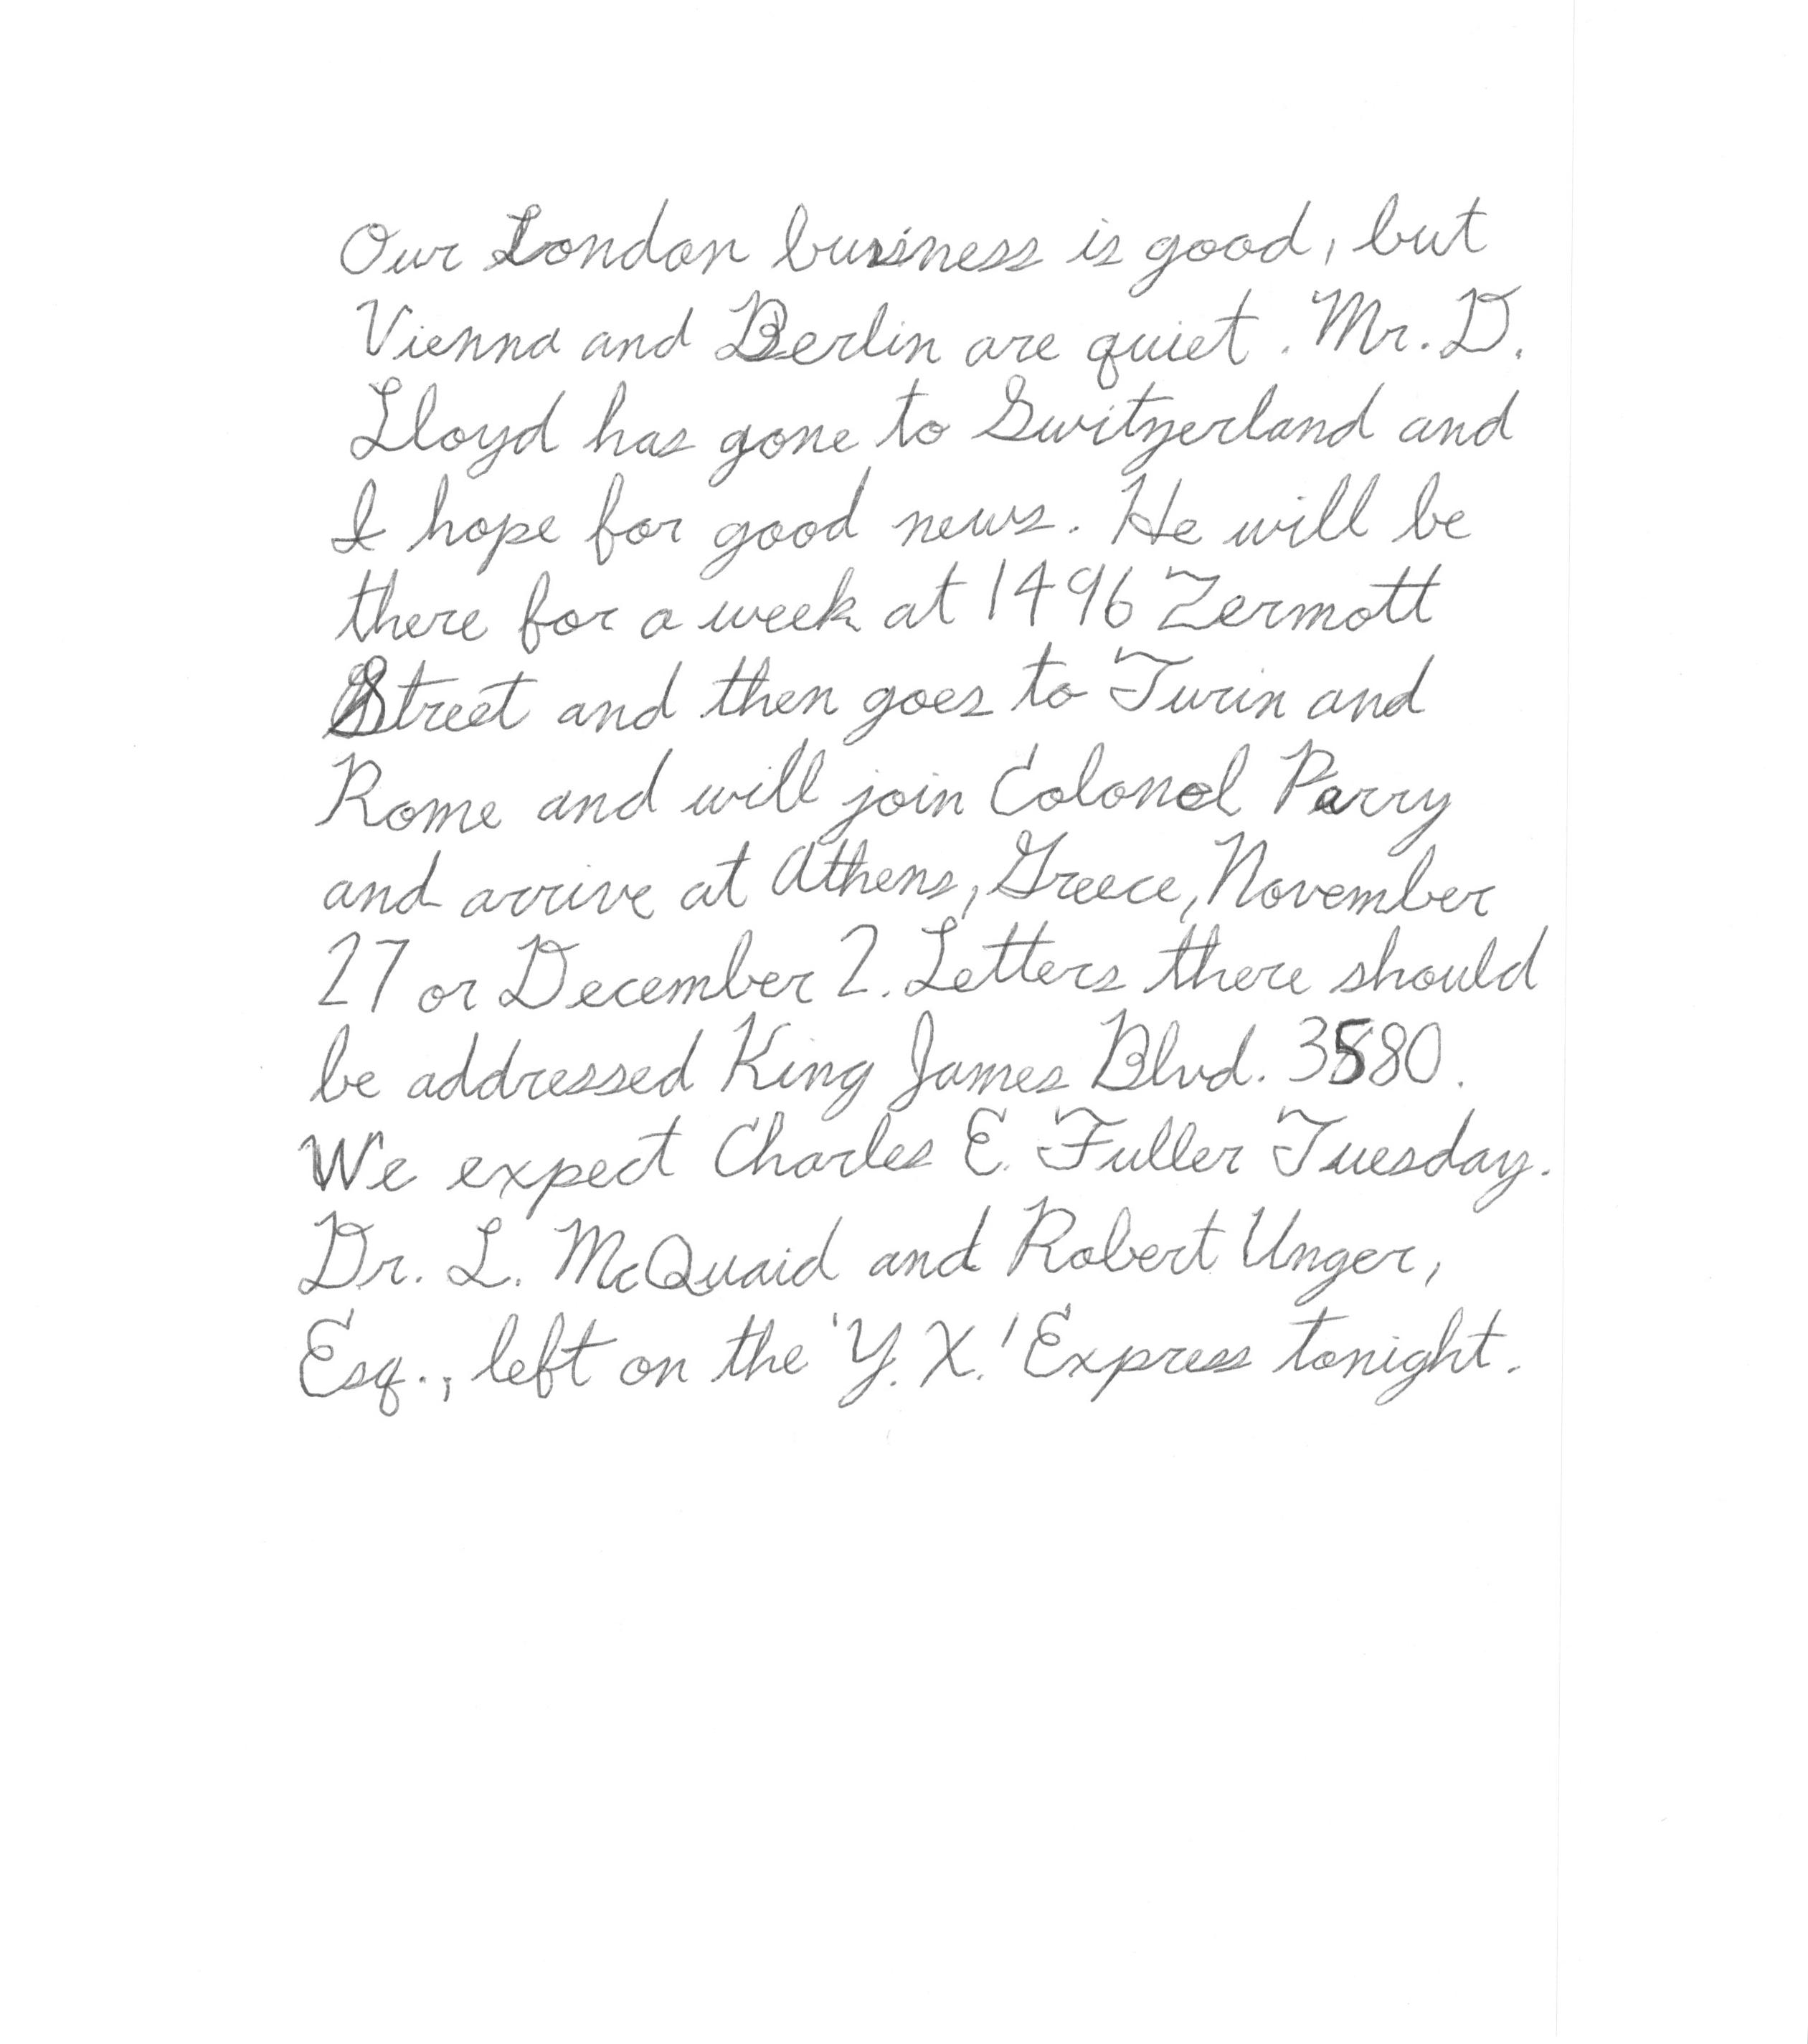 Our London business is good, but
Vienna and Berlin are quiet. Mr. D.
Lloyd has gone to Switzerland and
I hope for good news. He will be
there for a week at 1496 Zermott
Street and then goes to Turin and
Rome and will join Colonel Parry
and arrive at Athens, Greece, November
27 or December 2. Letters there should
be addressed King James Blvd. 3580.
We expect Charles E. Fuller Tuesday.
Dr. L. McQuaid and Robert Unger,
Esq., left on the 'Y. X.' Express tonight.